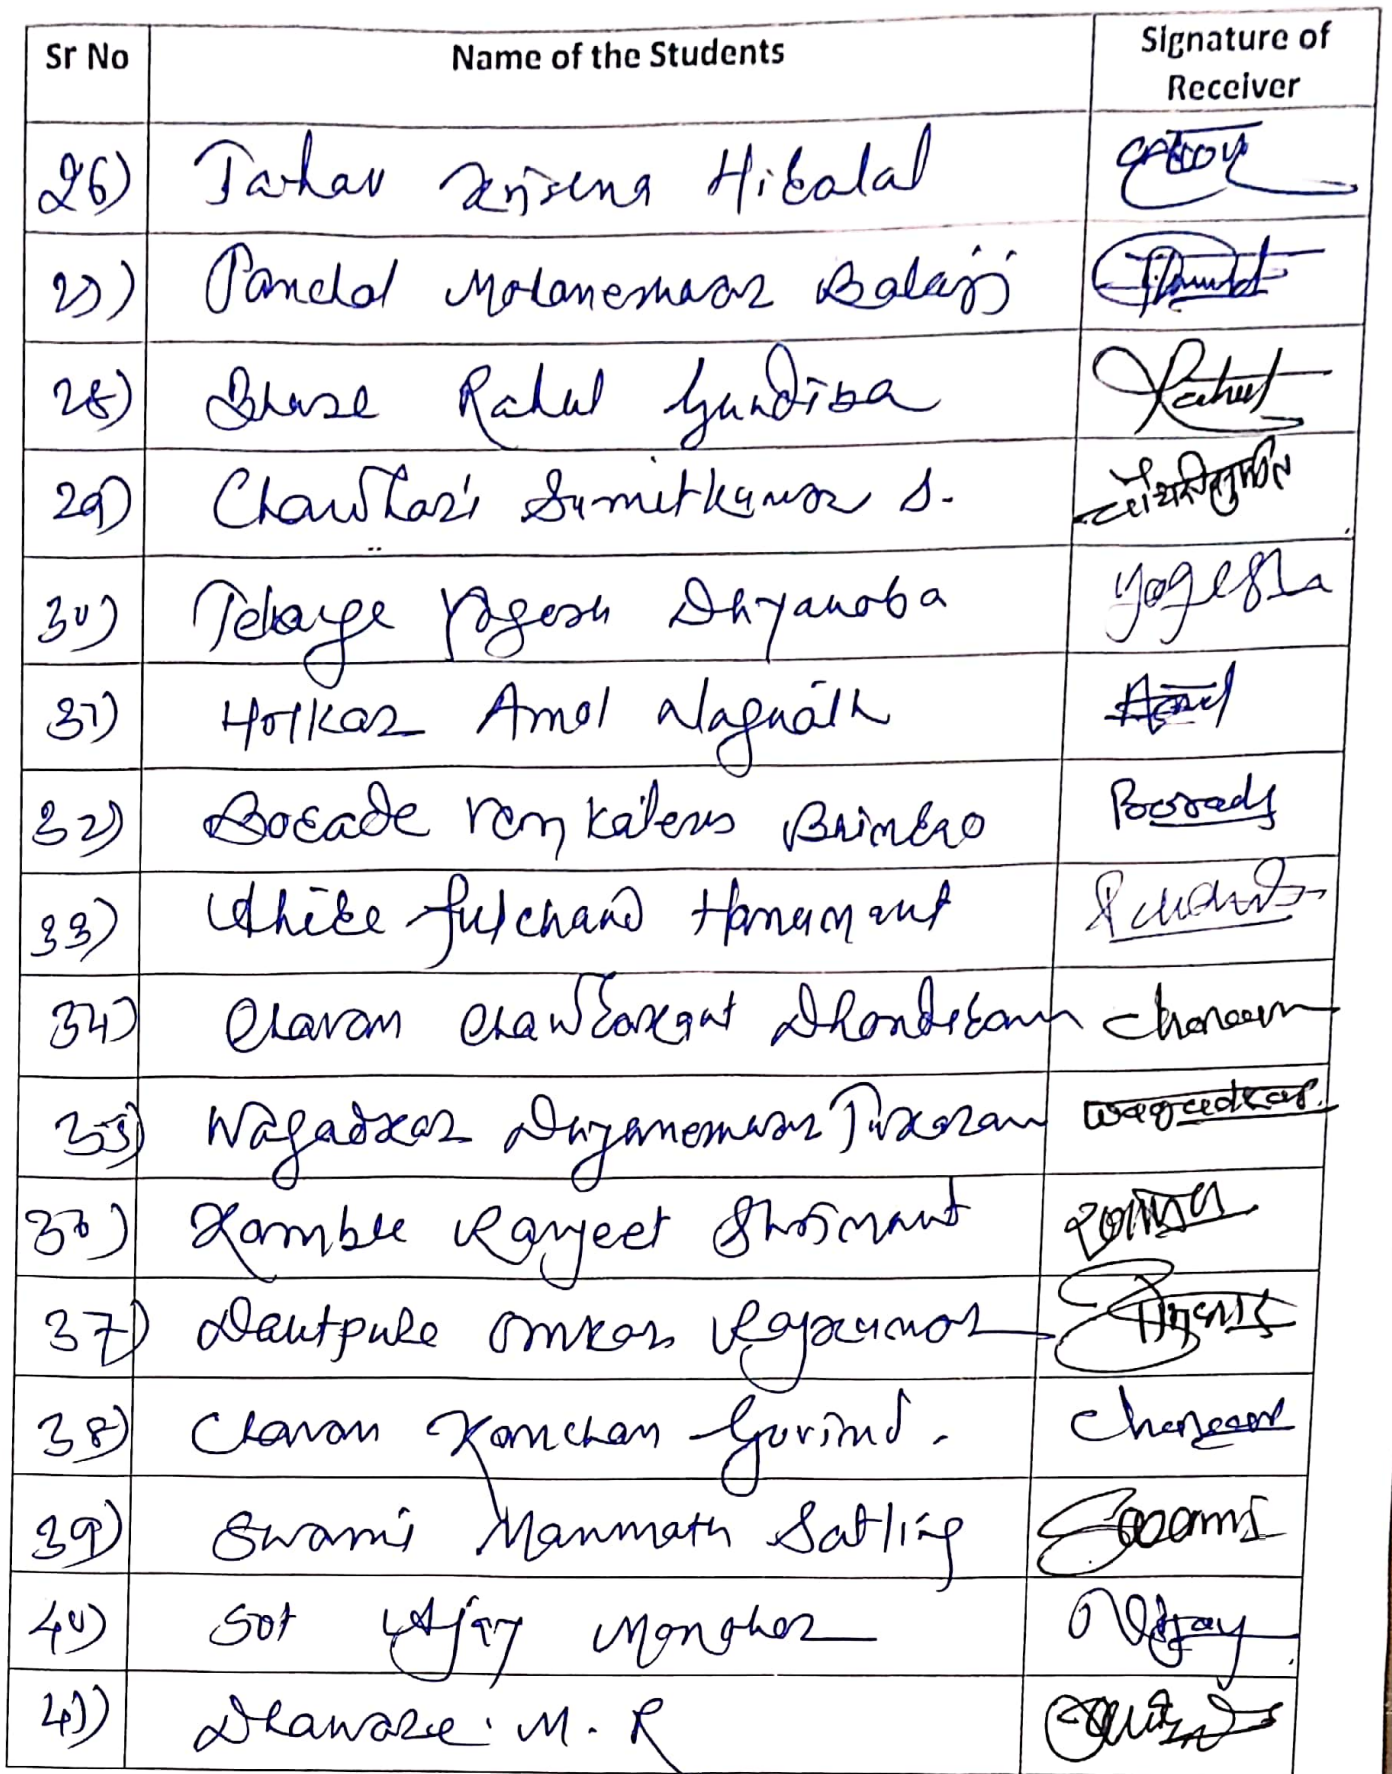 Sr No Name of the Students Signature of Receiver
26) Hiralal
27) Panchal Balaji
28) Bhure Rahul Gundiba Rahul
29) Chawhari Sumitkumar S.
30) Telange Yogesh Dnyanoba Yogesh
31) Holkar Amol Nagnath Amol
32) Borade Venkatesh Bhimrao Borade
33) Fulchand Hanumant
34) Chavan Dhondiram Chavan
35) Wagadkar Dnyaneshwar Tukaram Wagadkar
36) Kamble Ranjeet Shrimant
37) Dautpure Omkar Rajkumar
38) Chavan Kanchan Govind. Chavan
39) Swami Manmath Satling Swami
40) Sot Ajay Manohar Ajay
41) Dhaware. M. R